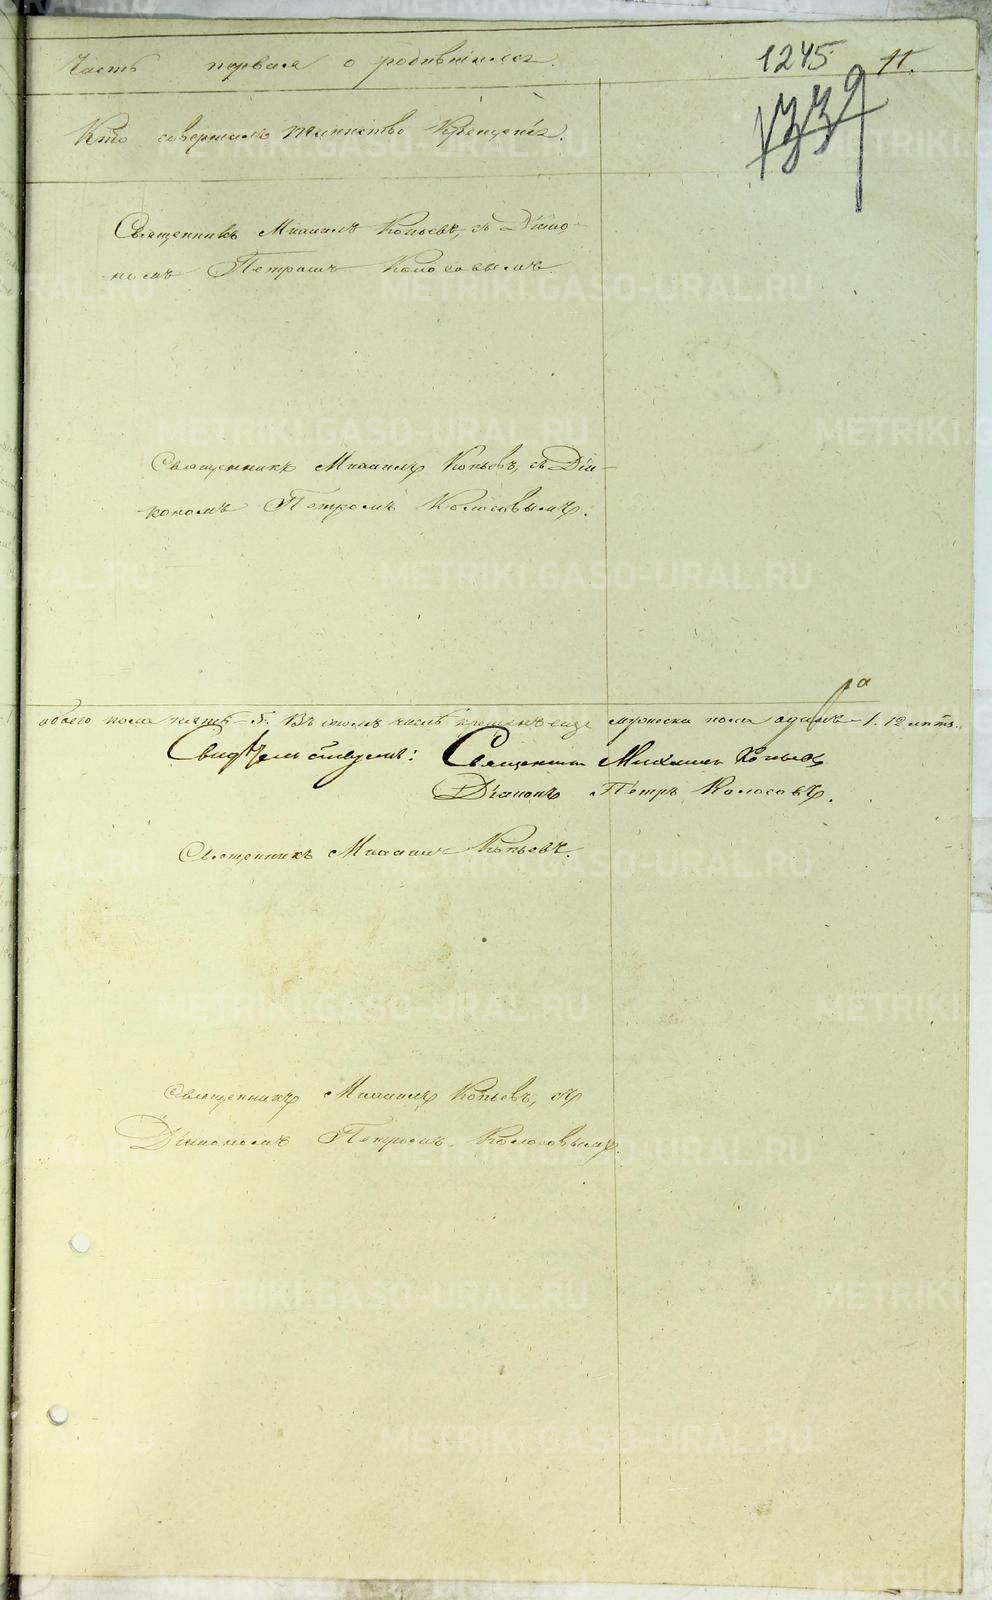 Часть первая о родившихся.
1245 11.
1339
Кто совершалъ таинство Крещенія.
Священникъ Михаилъ Копьевъ, съ Діако-
номъ Петромъ Колосовымъ.
Священникъ Михаилъ Копьевъ, съ Діа-
кономъ Петромъ Колосовымъ.
обоего пола шесть - 6. Въ томъ числѣ крещенъ еще мужеска пола одинъ - 1. 12 лѣтъ.
Свидѣтельствуемъ: Священникъ Михаилъ Копьевъ
Діаконъ Петръ Колосовъ.
Священникъ Михаилъ Копьевъ.
Священникъ Михаилъ Копьевъ, съ
Діакономъ Петромъ Колосовымъ.
METRIKI.GASO-URAL.RU